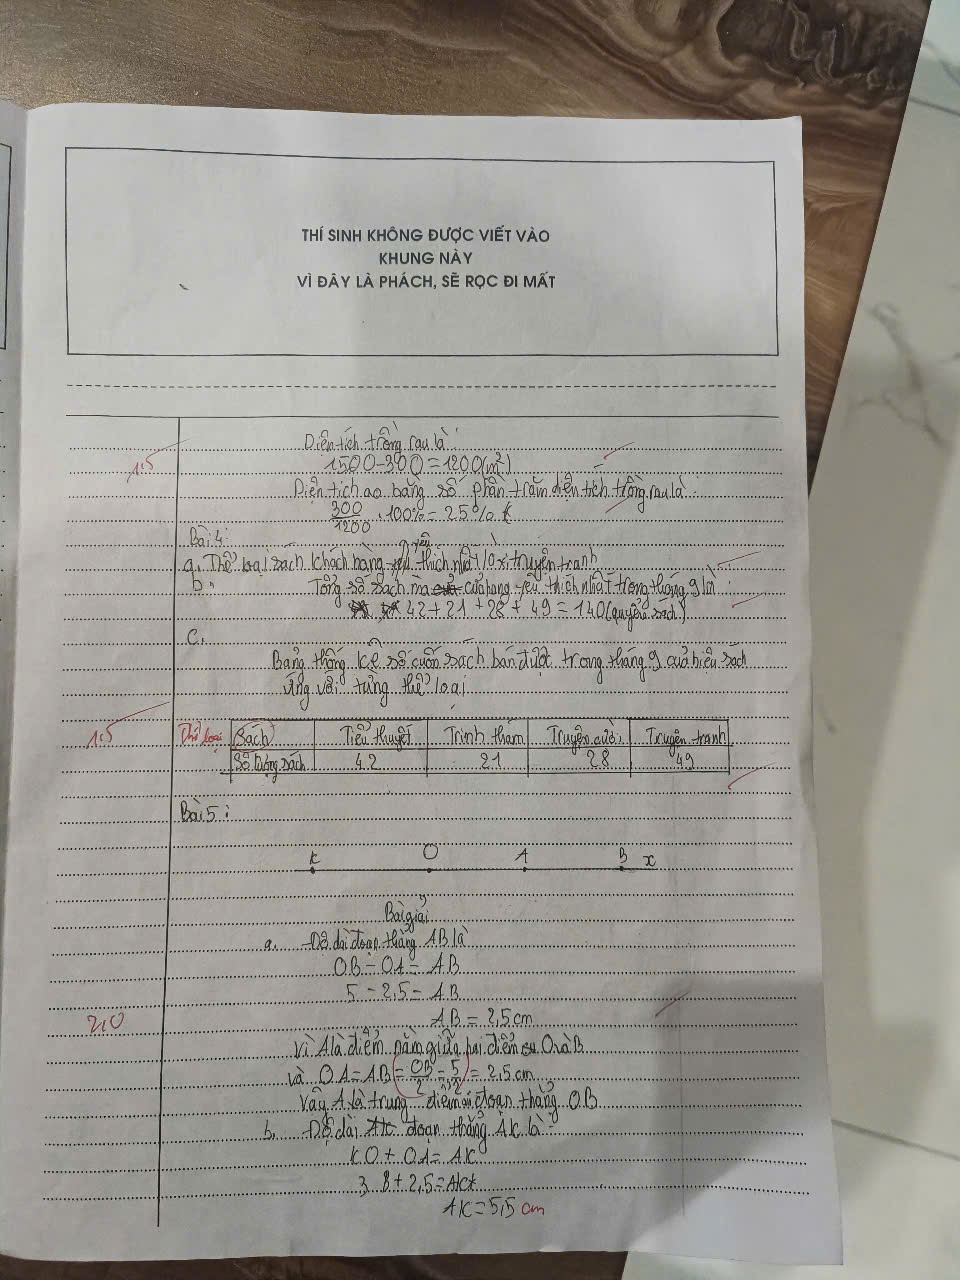 THÍ SINH KHÔNG ĐƯỢC VIẾT VÀO
KHUNG NÀY
VÌ ĐÂY LÀ PHÁCH, SẼ RỌC ĐI MẤT
Diện tích trồng rau là:
1,5
1500-300=1200(m²)
Diện tích ao bằng số phần trăm diện tích trồng rau là:
300/1200 . 100% = 25%
Bài 4:
a, Thể loại sách khách hàng yêu thích nhất là: truyện tranh
b,
Tổng số sách mà cửa hàng yêu thích nhất trong tháng 9 là:
42+21+28+49=140(quyển sách)
c,
Bảng thống kê số cuốn sách bán được trong tháng 9 của hiệu sách
ứng với từng thể loại
1,5
Thể loại Sách Tiểu thuyết Trinh thám Truyện cười Truyện tranh
Số lượng sách 42 21 28 49
Bài 5:
K O A B x
Bài giải
a. Độ dài đoạn thẳng AB là
OB-OA=AB
5-2,5=AB
2,0
AB=2,5cm
Vì A là điểm nằm giữa hai điểm O và B
và OA=AB=OB/2=5/2=2,5cm
Vậy A là trung điểm đoạn thẳng OB
b, Độ dài đoạn thẳng AK là:
KO+OA=AK
3+2,5=AK
AK=5,5 cm